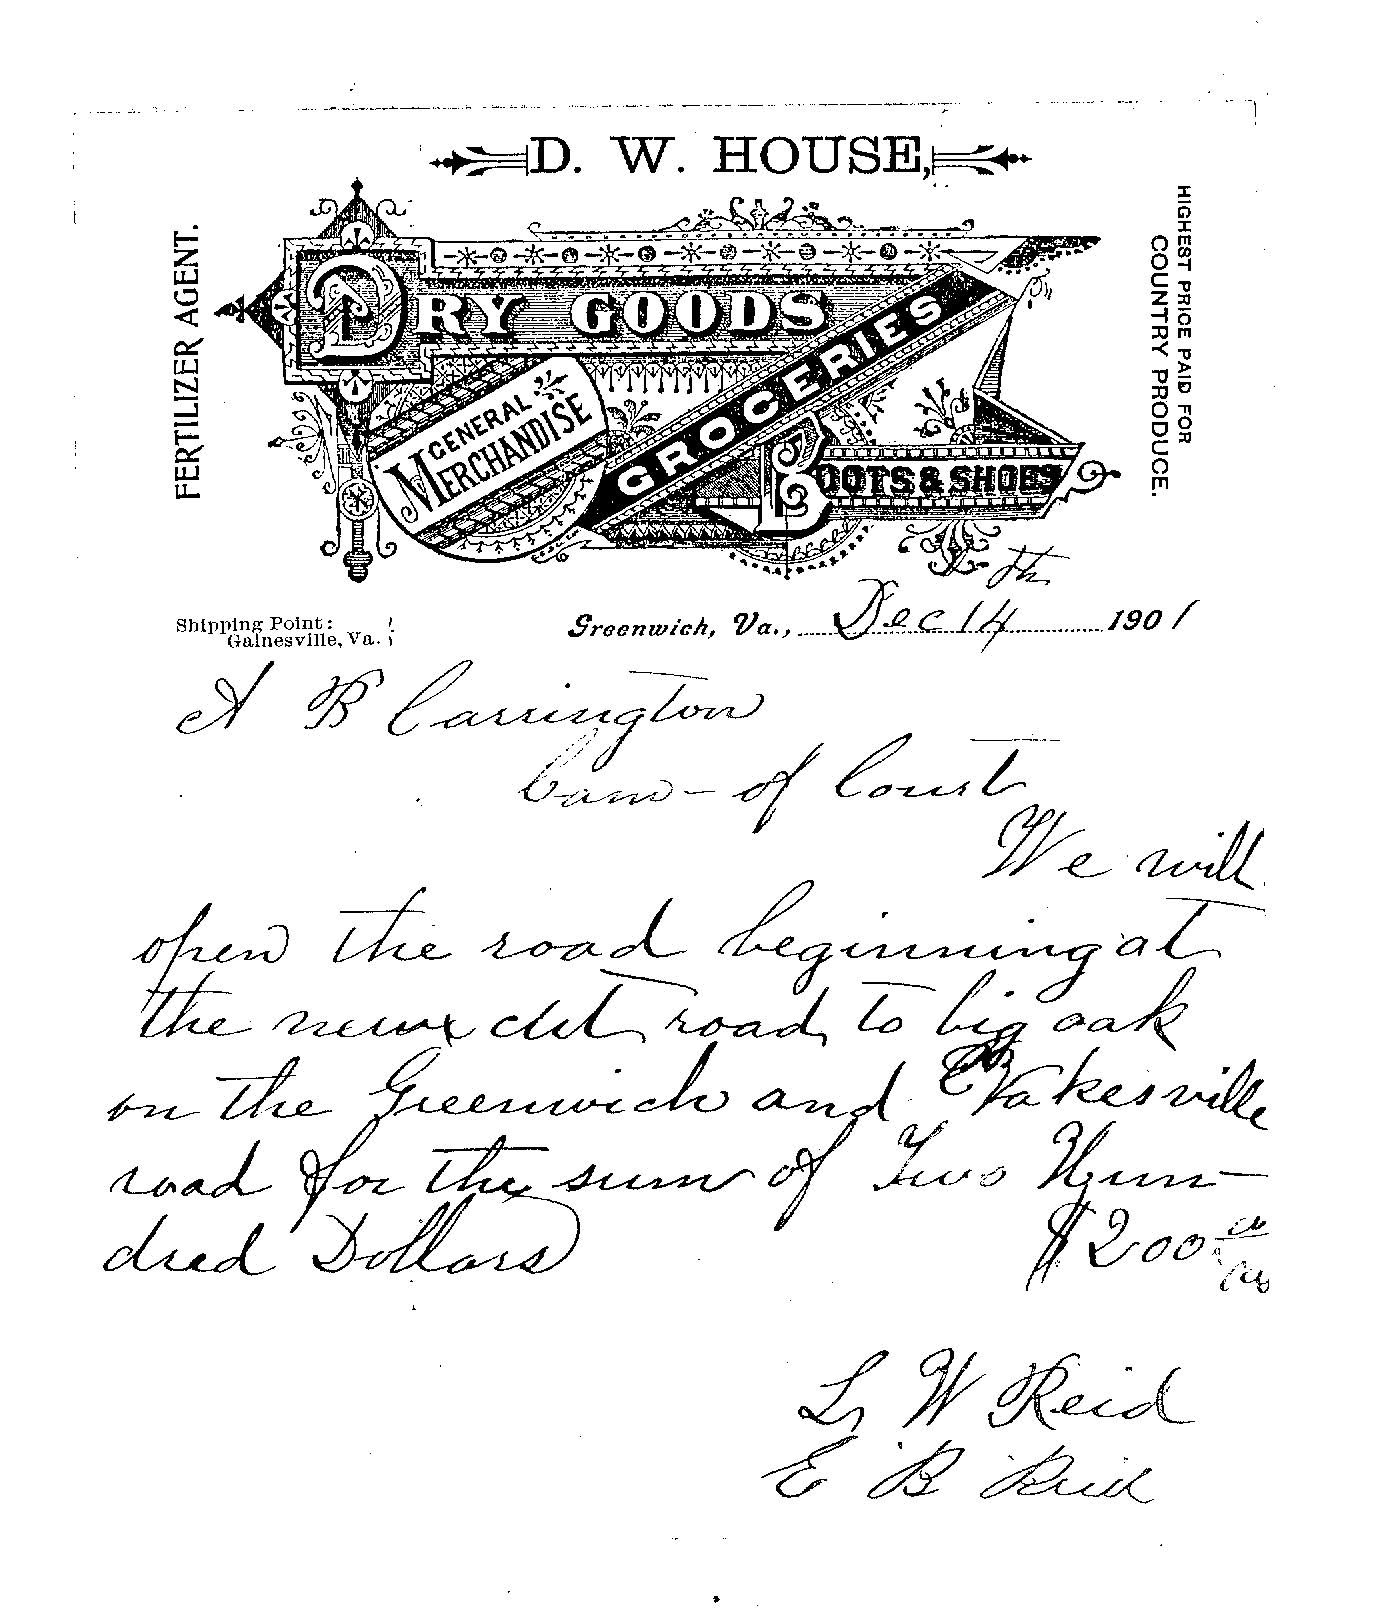 D. W. HOUSE,
FERTILIZER AGENT.
HIGHEST PRICE PAID FOR
COUNTRY PRODUCE.
DRY GOODS
GROCERIES
GENERAL
MERCHANDISE
BOOTS & SHOES
Shipping Point:
Gainesville, Va.
th
Greenwich, Va., Dec 14 1901
A B Carrington
Com - of Court
We will
open the road beginning at
the new cut road to big oak
on the Greenwich and Nokesville
road for the sum of Two Hun-
dred Dollars $200
L W Reid
E B Reid